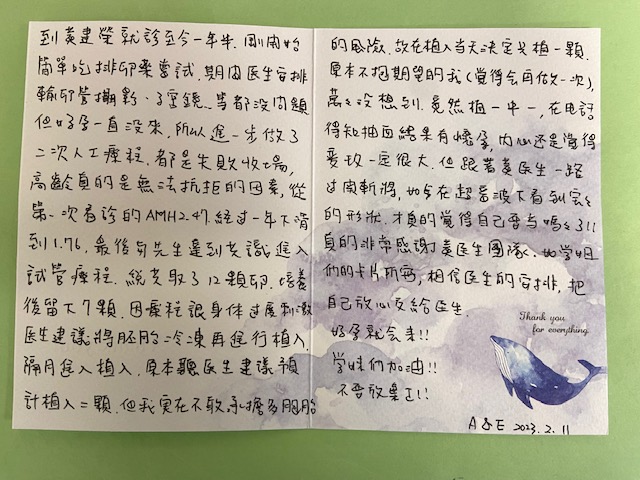 到黃建榮就診至今一年半. 剛開始
簡單吃排卵藥嘗試. 期間医生安排
輸卵管攝影、子宮鏡..等都沒問題
但好孕一直沒來, 所以進一步做了
二次人工療程. 都是失敗收場,
高齡真的是無法抗拒的因素, 從
第一次看診的AMH2.47. 經过一年下滑
到1.76. 最後与先生達到共識進入
試管療程. 總共取了12顆卵. 培養
後留下7顆. 因療程混身体过度刺激
医生建議將胚胎冷凍再進行植入.
隔月進入植入. 原本聽医生建議預
計植入二顆. 但我實在不敢承擔多胞胎
的風險. 故在植入当天決定只植一顆.
原本不抱期望的我(覺得会再做一次),
萬萬沒想到. 竟然植一中一, 在电話
得知抽血結果有懷孕, 内心还是覺得
變攻一定很大. 但跟著黃医生一路
过関斬將, 如今在超音波下看到宝宝
的形狀. 才真的覺得自己要当媽媽了!!
真的非常感謝黃医生團隊. 如学姐
們的卡片所寫, 相信医生的安排, 把
自己放心交給医生
好孕就会来!!
学妹們加油!!
不要放棄!!
Thank you
for everything.
A&E 2023.2.11